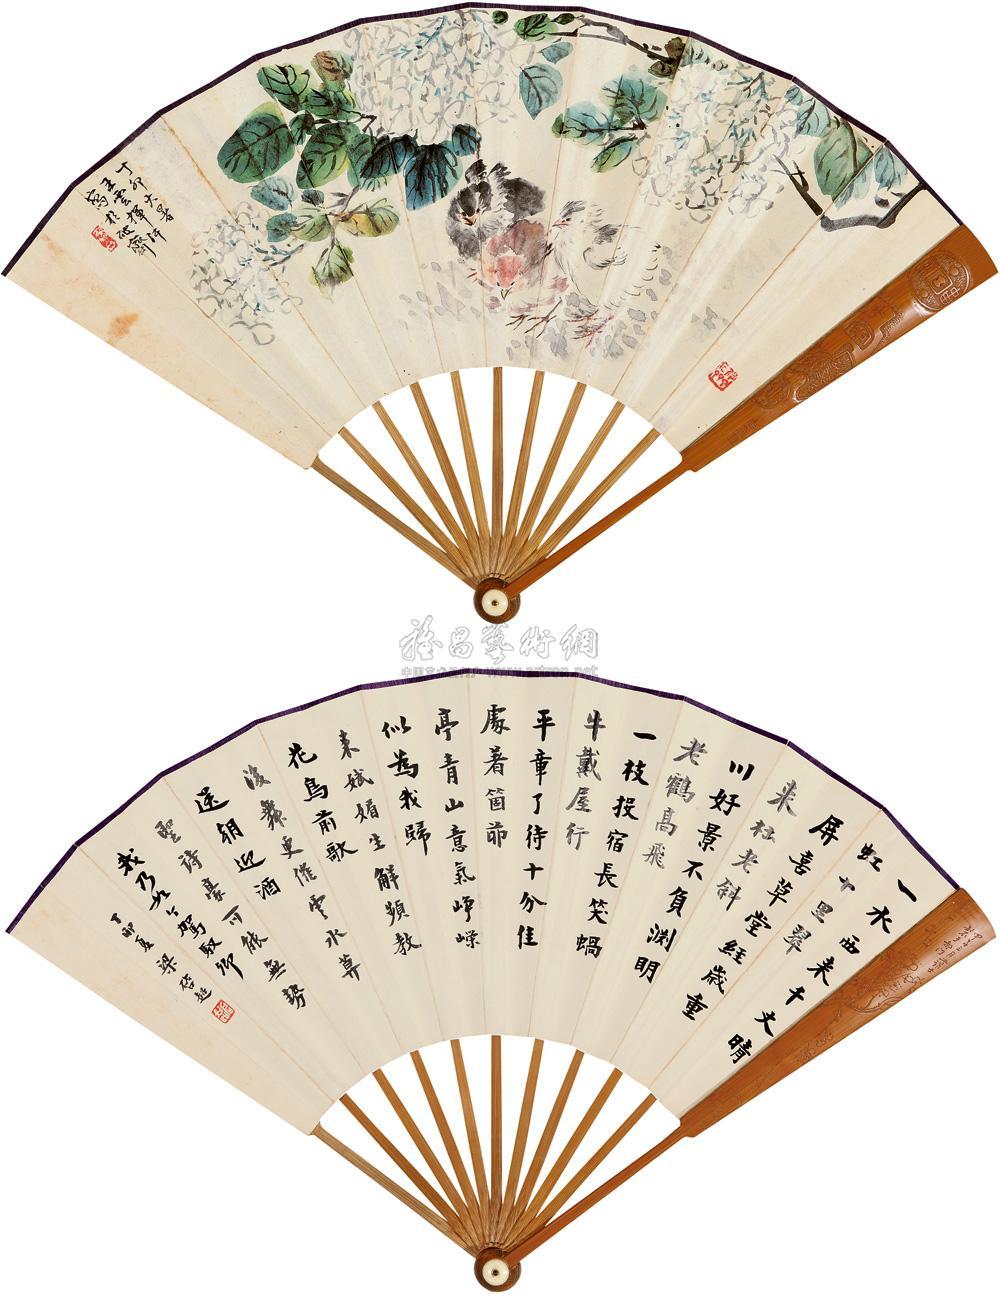 丁卯大暑
王雲揮
寫於
雅昌藝術網
一水西來千丈晴
虹十里翠
屏喜草堂經歲重
來杜老斜
川好景不負淵明
老鶴高飛
一枝投宿長笑蝸
牛戴屋行
平章了待十分佳
處著箇茆
亭青山意氣崢嶸
似為我歸
来娬媚生解頻教
花鳥前歌
後舞更催雲水莫
送朝迎酒
聖詩豪可能無勢
我乃而今駕馭卿
丁卯夏梁啓超